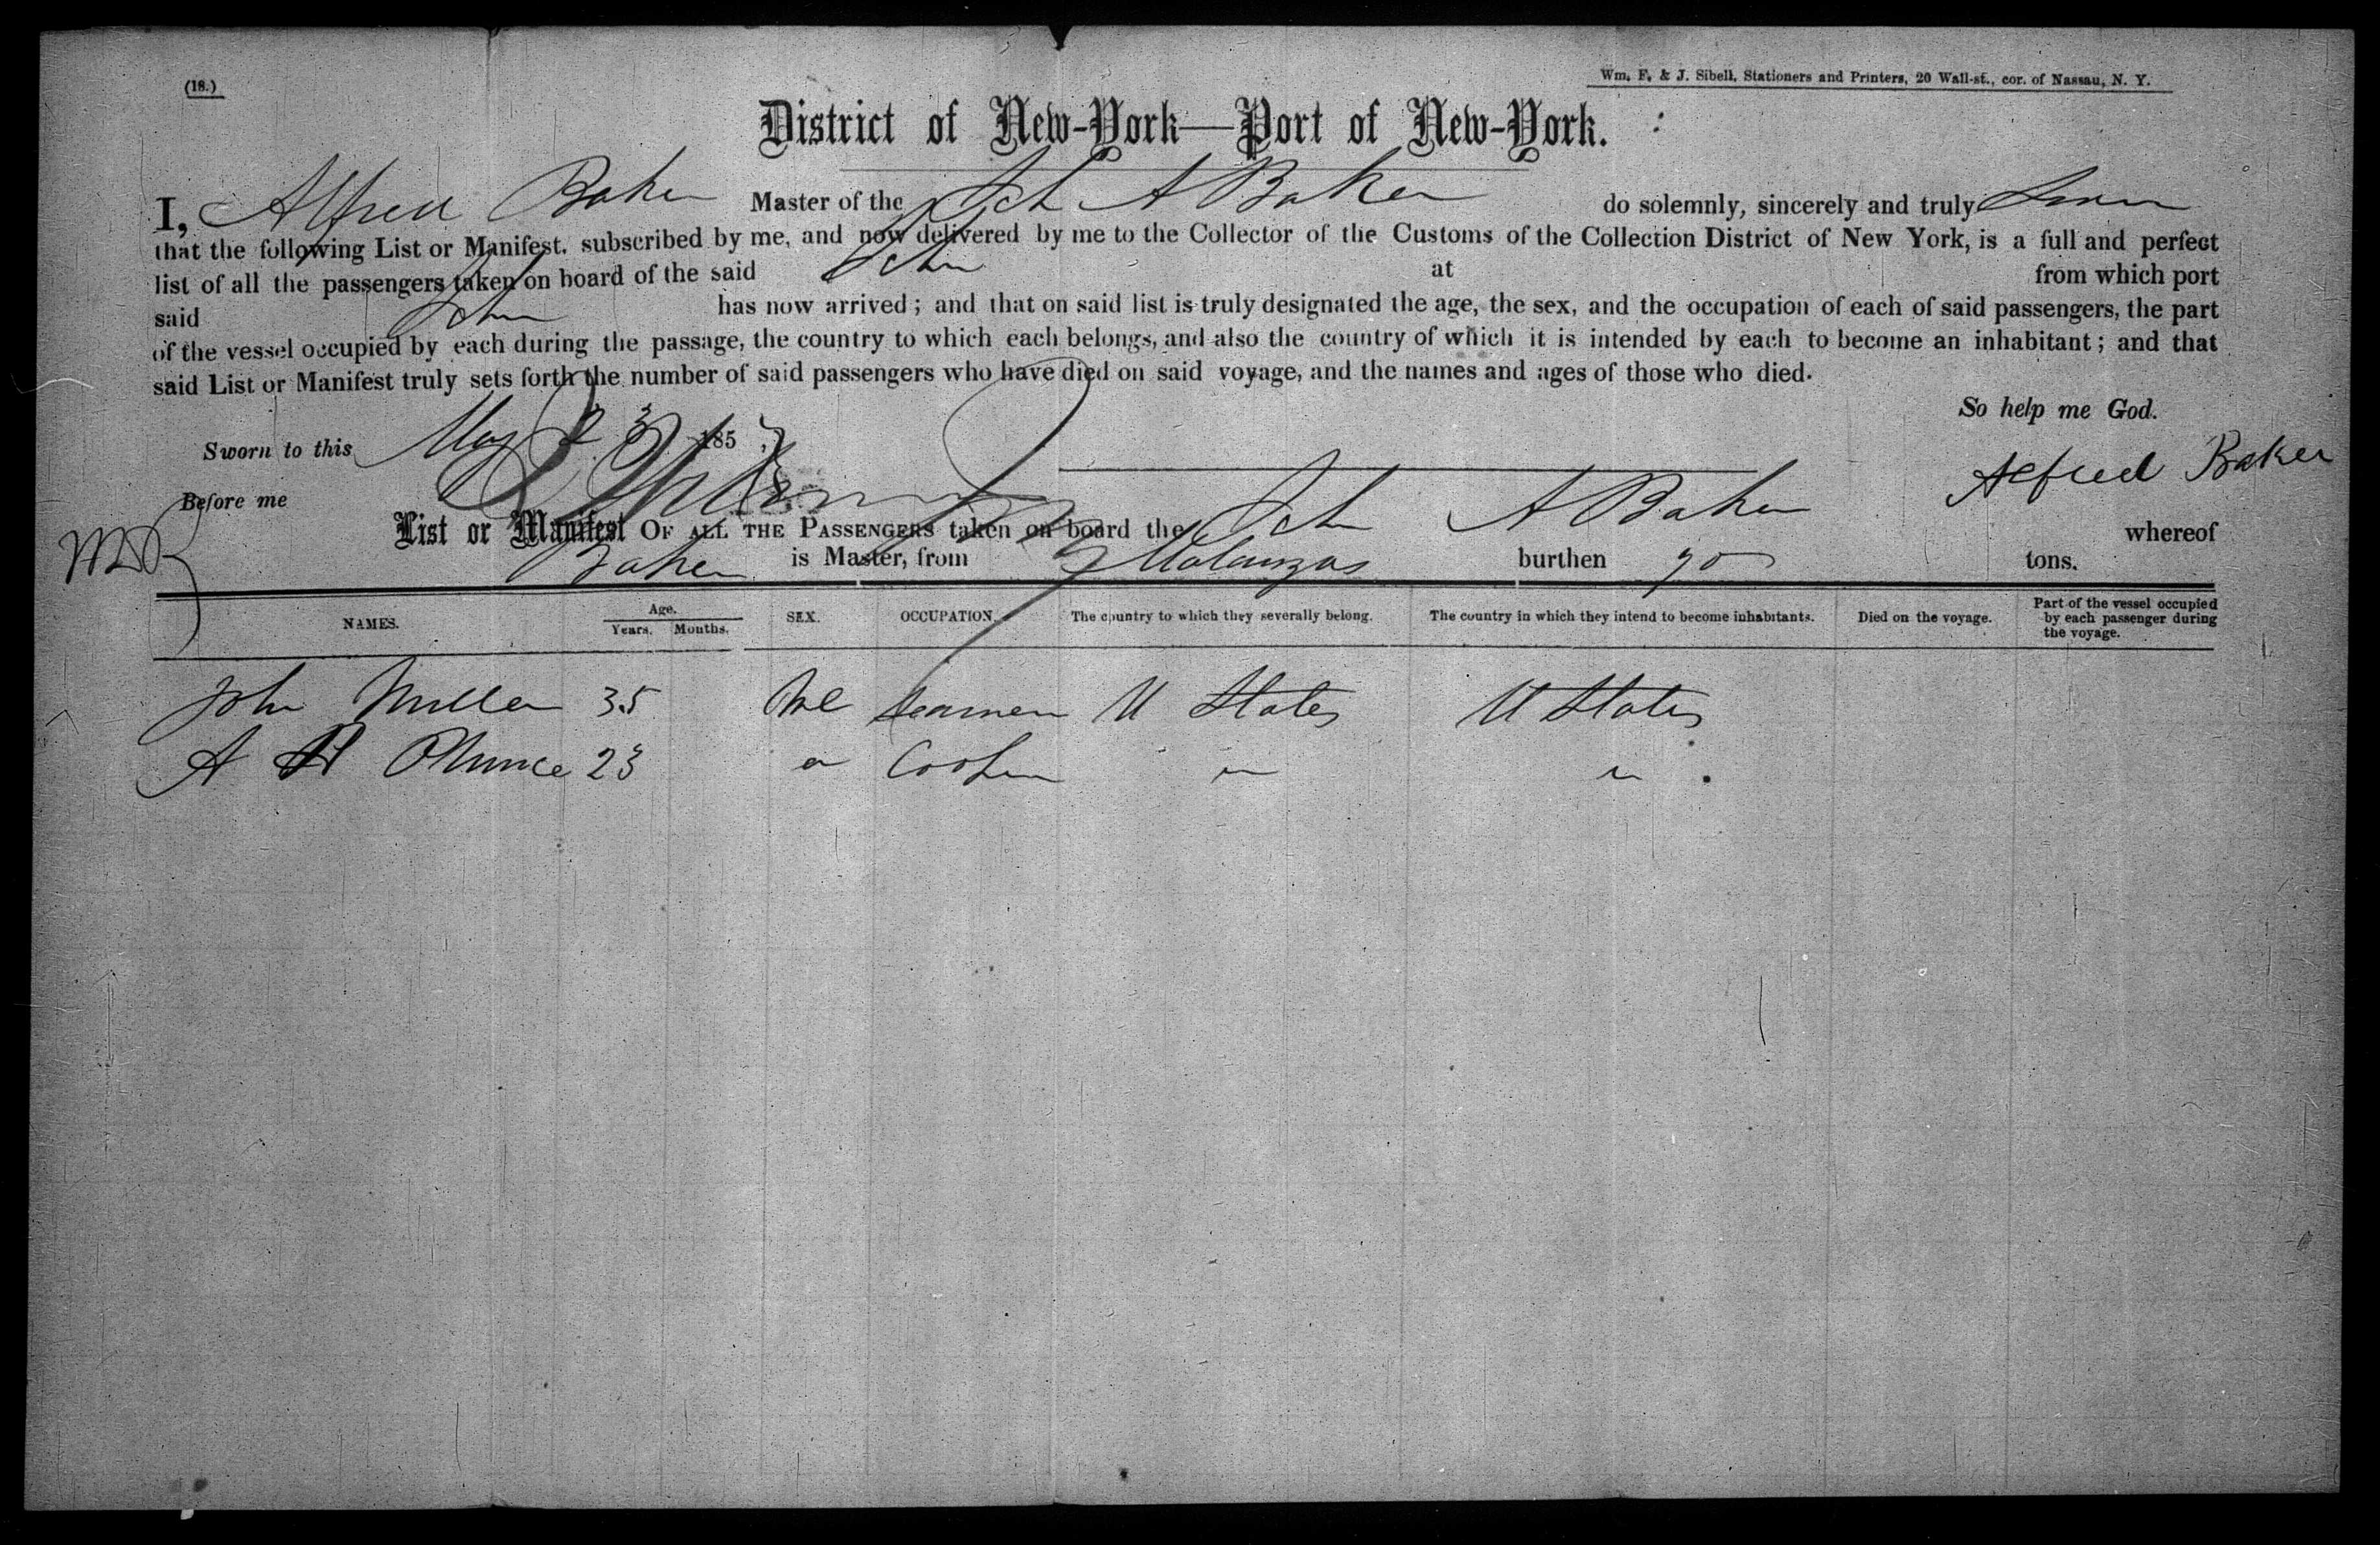 (18.)
Wm. F. & J. Sibell, Stationers and Printers, 20 Wall-st., cor. of Nassau, N. Y.
District of New-York—Port of New-York.
I, Alfred Baker Master of the Sch A Baker do solemnly, sincerely and truly
that the following List or Manifest, subscribed by me, and now delivered by me to the Collector of the Customs of the Collection District of New York, is a full and perfect
list of all the passengers taken on board of the said Schr at from which port
said Schr has now arrived; and that on said list is truly designated the age, the sex, and the occupation of each of said passengers, the part
of the vessel occupied by each during the passage, the country to which each belongs, and also the country of which it is intended by each to become an inhabitant; and that
said List or Manifest truly sets forth the number of said passengers who have died on said voyage, and the names and ages of those who died.
So help me God.
Sworn to this May 23 1857
Alfred Baker
Before me
List or Manifest OF ALL THE PASSENGERS taken on board the Schr A Baker whereof
Baker is Master, from Matanzas burthen tons.
NAMES. Age. Years. Months. SEX. OCCUPATION. The country to which they severally belong. The country in which they intend to become inhabitants. Died on the voyage. Part of the vessel occupied by each passenger during the voyage.
John Miller 35 Seaman U States U States
A H 23